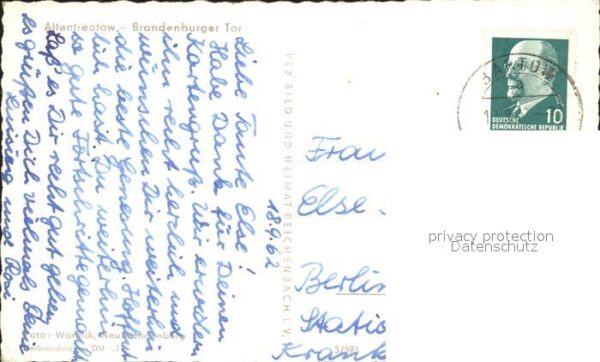 Altentreptow - Brandenburger Tor
18.9.62
Liebe Tante Else!
Habe Dank für Deinen
Kartengruß. Wir erwidern
ihn recht herzlich und
wünschen Dir weiterhin
die beste Genesung. Hoffent
lich hast Du weiterhin
so gute Fortschritte gemacht.
Laß es Dir recht gut gehen,
es grüßen Dich vielmals Deine
und Rosi
VEB BILD UND HEIMAT REICHENBACH I. V.
Foto: Worsick, Neubrandenburg
Verbraucherpreis DM
Frau
Else
Berlin
Statio
Krank
BANTOW
10
DEUTSCHE
DEMOKRATISCHE REPUBLIK
privacy protection
Datenschutz